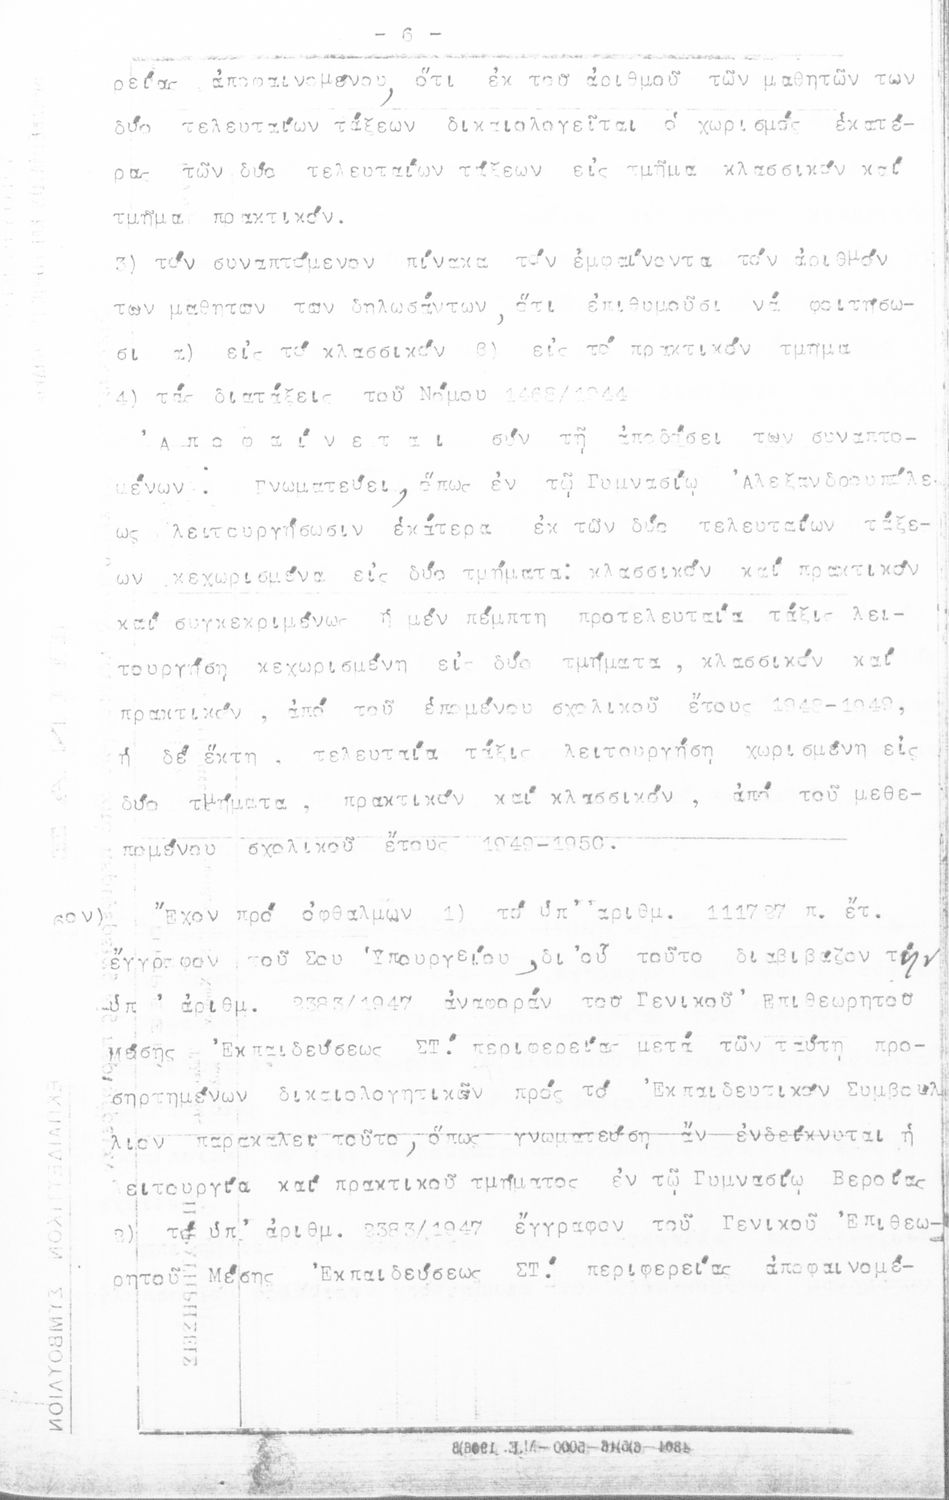 - 6 -
ρείας ἀποφαινομένου, ὅτι ἐκ τοῦ ἀριθμοῦ τῶν μαθητῶν των
δύο τελευταίων τάξεων δικαιολογεῖται ὁ χωρισμός ἑκατέ-
ρας τῶν δύο τελευταίων τάξεων εἰς τμῆμα κλασσικόν καί
τμῆμα πρακτικόν.
3) τόν συναπτόμενον πίνακα τόν ἐμφαίνοντα τόν ἀριθμόν
των μαθητων των δηλωσάντων, ὅτι ἐπιθυμοῦσι νά φοιτήσω-
σι α) εἰς τό κλασσικόν β) εἰς τό πρακτικόν τμημα
4) τάς διατάξεις τοῦ Νόμου 1468/1944
'Α π ο φ α ί ν ε τ α ι σύν τῇ ἀποδόσει των συναπτο-
μένων : Γνωματεύει, ὅπως ἐν τῷ Γυμνασίῳ 'Αλεξανδρουπόλε-
ως λειτουργήσωσιν ἑκάτερα ἐκ τῶν δύο τελευταίων τάξε-
ων κεχωρισμένα εἰς δύο τμήματα: κλασσικόν καί πρακτικόν
καί συγκεκριμένως ἡ μέν πέμπτη προτελευταία τάξις λει-
τουργήση κεχωρισμένη εἰς δύο τμήματα , κλασσικόν καί
πρακτικόν , ἀπό τοῦ ἑπομένου σχολικοῦ ἔτους 1948-1949,
ἡ δέ ἕκτη , τελευταία τάξις λειτουργήση χωρισμένη εἰς
δύο τμήματα , πρακτικόν καί κλασσικόν , ἀπό τοῦ μεθε-
πομένου σχολικοῦ ἔτους 1949-1950.
6ον) Ἔχον πρό ὀφθαλμῶν 1) τό ὑπ' ἀριθμ. 111727 π. ἔτ.
ἔγγραφον τοῦ Σου Ὑπουργείου, δι'οὗ τοῦτο διαβιβαζον τήν
ὑπ' ἀριθμ. 2383/1947 ἀναφοράν του Γενικοῦ 'Επιθεωρητοῦ
Μέσης 'Εκπαιδεύσεως ΣΤ! περιφερείας μετά τῶν ταύτη προ-
σηρτημένων δικαιολογητικῶν πρός τό 'Εκπαιδευτικόν Συμβού-
λιον παρακαλεῖ τοῦτο, ὅπως γνωματεύση ἄν ἐνδείκνυται ἡ
λειτουργία καί πρακτικοῦ τμήματος ἐν τῷ Γυμνασίῳ Βεροίας
2) τό ὑπ' ἀριθμ. 2383/1947 ἔγγραφον τοῦ Γενικοῦ 'Επιθεω-
ρητοῦ Μέσης 'Εκπαιδεύσεως ΣΤ! περιφερείας ἀποφαινομέ-